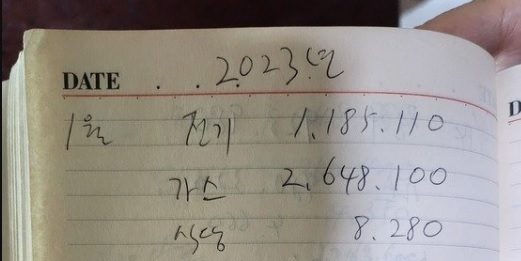 DATE . . . 2023년
1월 전기 1.185.110
가스 2.648.100
8.280
D